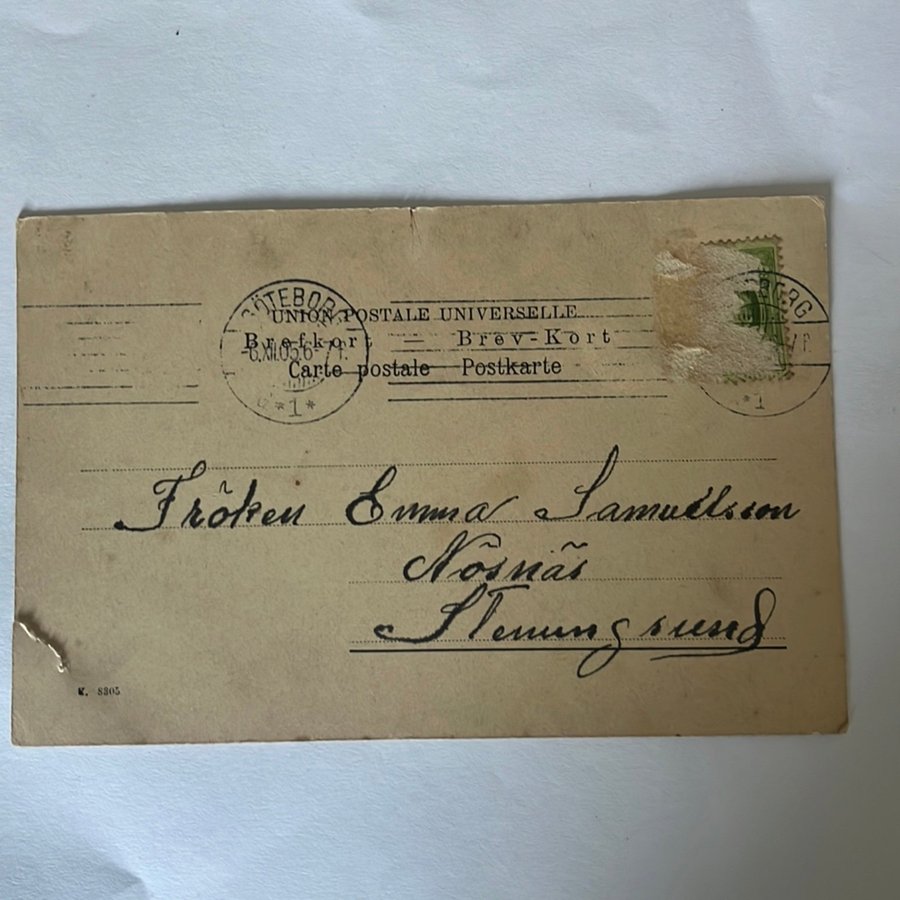 GÖTEBORG
UNION POSTALE UNIVERSELLE
Brefkort — Brev-Kort
6.XII.05.6-7 F.
Carte postale Postkarte
*1*
1
Fröken Emma Samuelsson
Nösnäs
Stenungsund
K. 8305